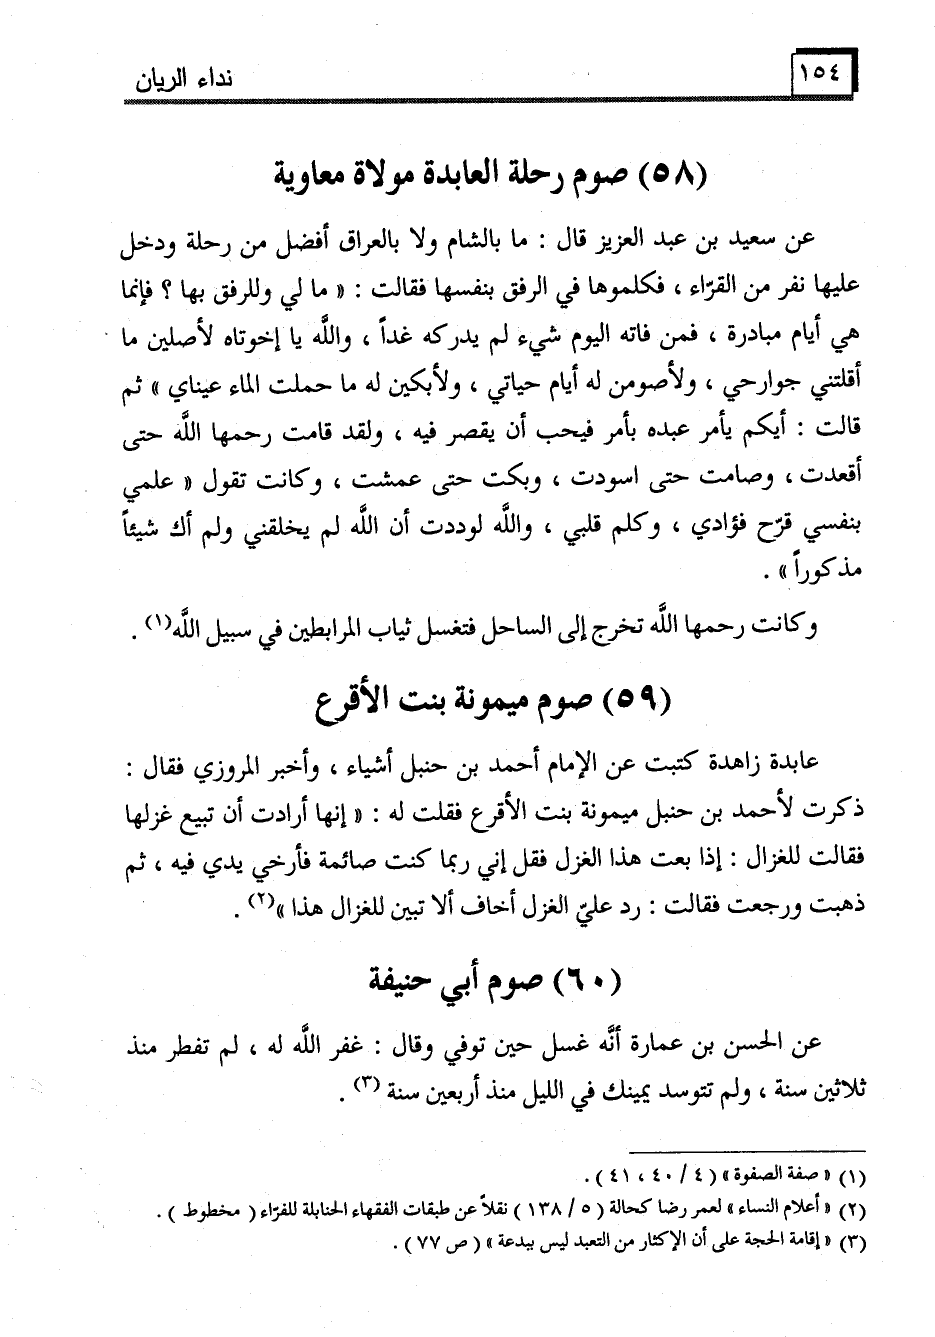 ١٥٤
نداء الريان
(٥٨) صوم رحلة العابدة مولاة معاوية
عن سعيد بن عبد العزيز قال : ما بالشام ولا بالعراق أفضل من رحلة ودخل
عليها نفر من القرّاء ، فكلموها في الرفق بنفسها فقالت : « ما لي وللرفق بها ؟ فإنما
هي أيام مبادرة ، فمن فاته اليوم شيء لم يدركه غداً ، واللَّه يا إخوتاه لأصلين ما
أقلتني جوارحي ، ولأصومن له أيام حياتي ، ولأبكين له ما حملت الماء عيناي » ثم
قالت : أيكم يأمر عبده بأمر فيحب أن يقصر فيه ، ولقد قامت رحمها اللَّه حتى
أقعدت ، وصامت حتى اسودت ، وبكت حتى عمشت ، وكانت تقول « علمي
بنفسي قرّح فؤادي ، وكلم قلبي ، واللَّه لوددت أن اللَّه لم يخلقني ولم أك شيئاً
مذكوراً » .
وكانت رحمها اللَّه تخرج إلى الساحل فتغسل ثياب المرابطين في سبيل اللَّه(١) .
(٥٩) صوم ميمونة بنت الأقرع
عابدة زاهدة كتبت عن الإمام أحمد بن حنبل أشياء ، وأخبر المروزي فقال :
ذكرت لأحمد بن حنبل ميمونة بنت الأقرع فقلت له : « إنها أرادت أن تبيع غزلها
فقالت للغزال : إذا بعت هذا الغزل فقل إني ربما كنت صائمة فأرخي يدي فيه ، ثم
ذهبت ورجعت فقالت : رد عليّ الغزل أخاف ألا تبين للغزال هذا »(٢) .
(٦٠) صوم أبي حنيفة
عن الحسن بن عمارة أنَّه غسل حين توفي وقال : غفر اللَّه له ، لم تفطر منذ
ثلاثين سنة ، ولم تتوسد يمينك في الليل منذ أربعين سنة (٣) .
(١) « صفة الصفوة » ( ٤ / ٤٠ ، ٤١ ) .
(٢) « أعلام النساء » لعمر رضا كحالة ( ٥ / ١٣٨ ) نقلاً عن طبقات الفقهاء الحنابلة للفرّاء ( مخطوط ) .
(٣) « إقامة الحجة على أن الإكثار من التعبد ليس ببدعة » ( ص ٧٧ ) .